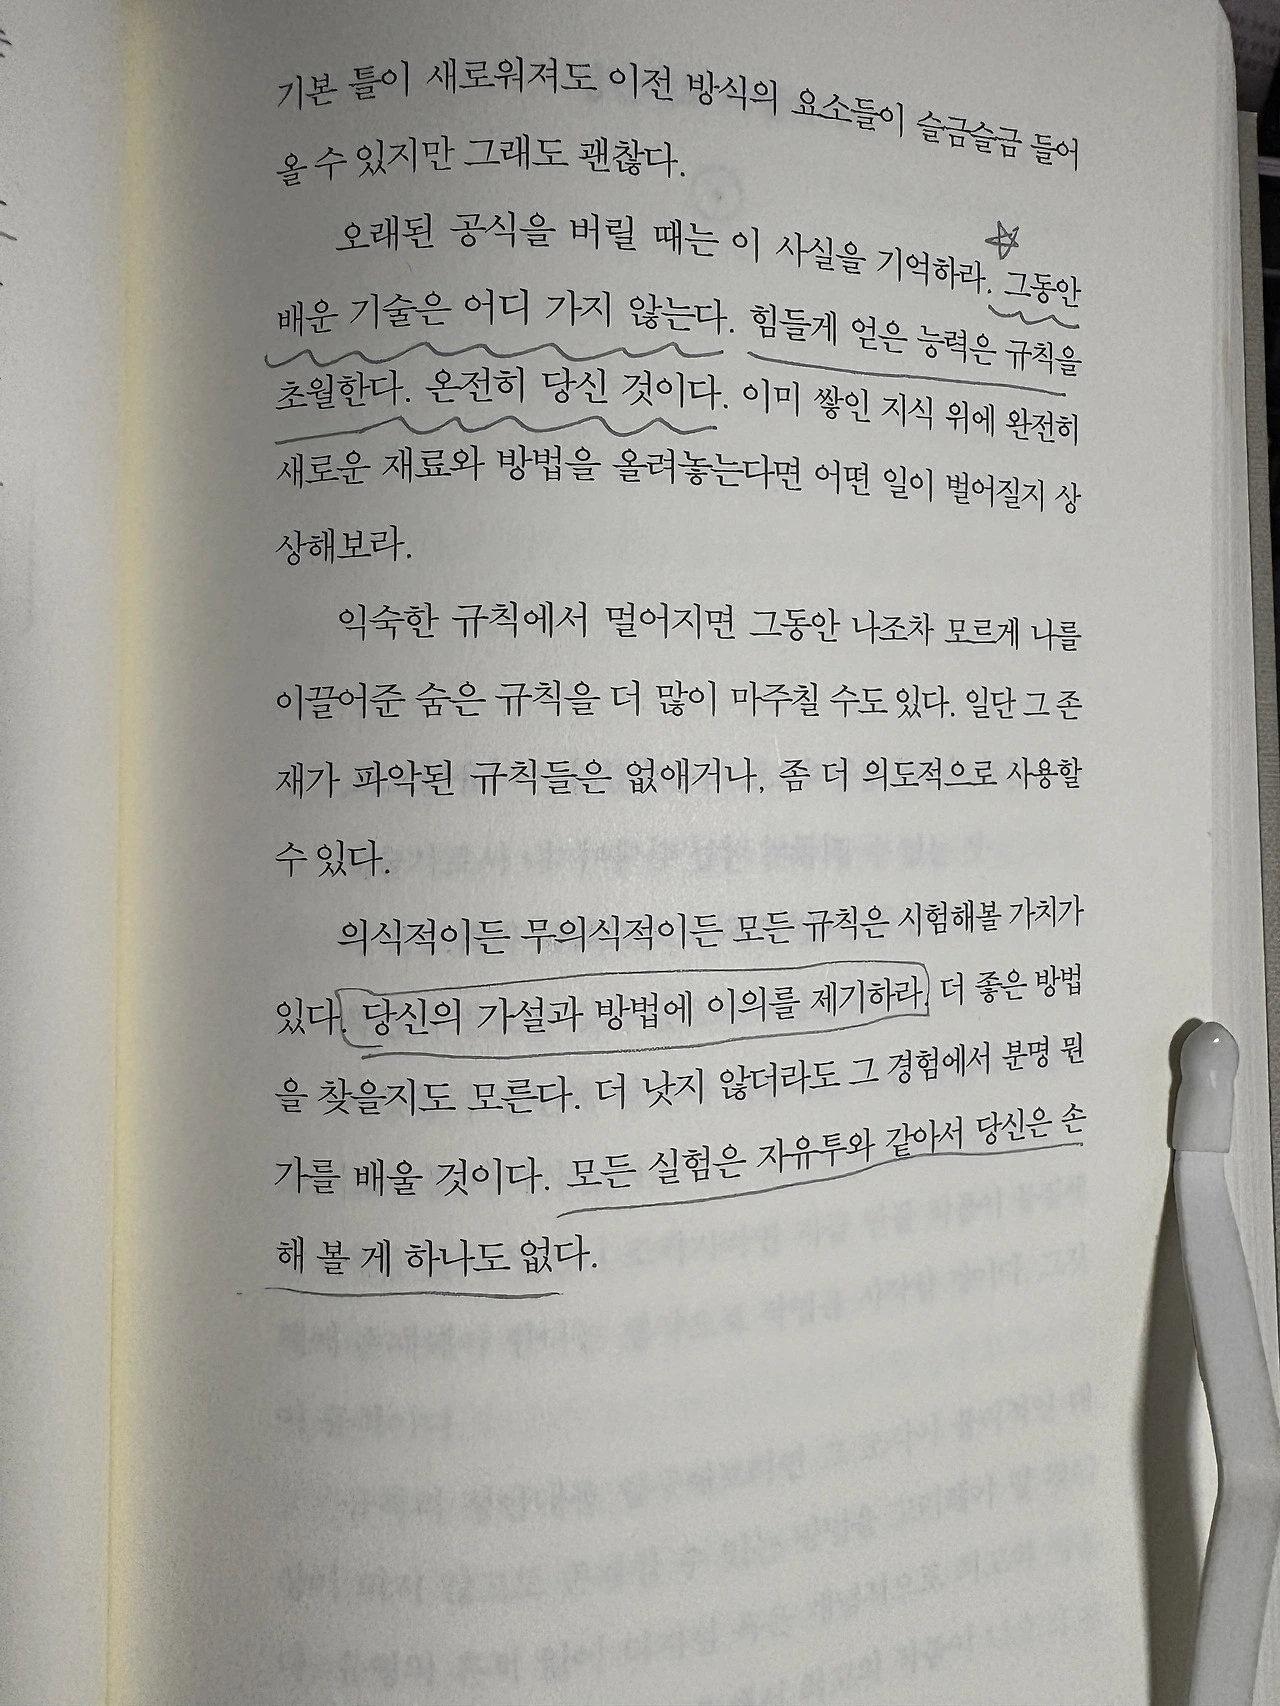 기본 틀이 새로워져도 이전 방식의 요소들이 슬금슬금 들어
올 수 있지만 그래도 괜찮다.
오래된 공식을 버릴 때는 이 사실을 기억하라. 그동안
배운 기술은 어디 가지 않는다. 힘들게 얻은 능력은 규칙을
초월한다. 온전히 당신 것이다. 이미 쌓인 지식 위에 완전히
새로운 재료와 방법을 올려놓는다면 어떤 일이 벌어질지 상
상해보라.
익숙한 규칙에서 멀어지면 그동안 나조차 모르게 나를
이끌어준 숨은 규칙을 더 많이 마주칠 수도 있다. 일단 그 존
재가 파악된 규칙들은 없애거나, 좀 더 의도적으로 사용할
수 있다.
의식적이든 무의식적이든 모든 규칙은 시험해볼 가치가
있다. 당신의 가설과 방법에 이의를 제기하라. 더 좋은 방법
을 찾을지도 모른다. 더 낫지 않더라도 그 경험에서 분명 뭔
가를 배울 것이다. 모든 실험은 자유투와 같아서 당신은 손
해 볼 게 하나도 없다.